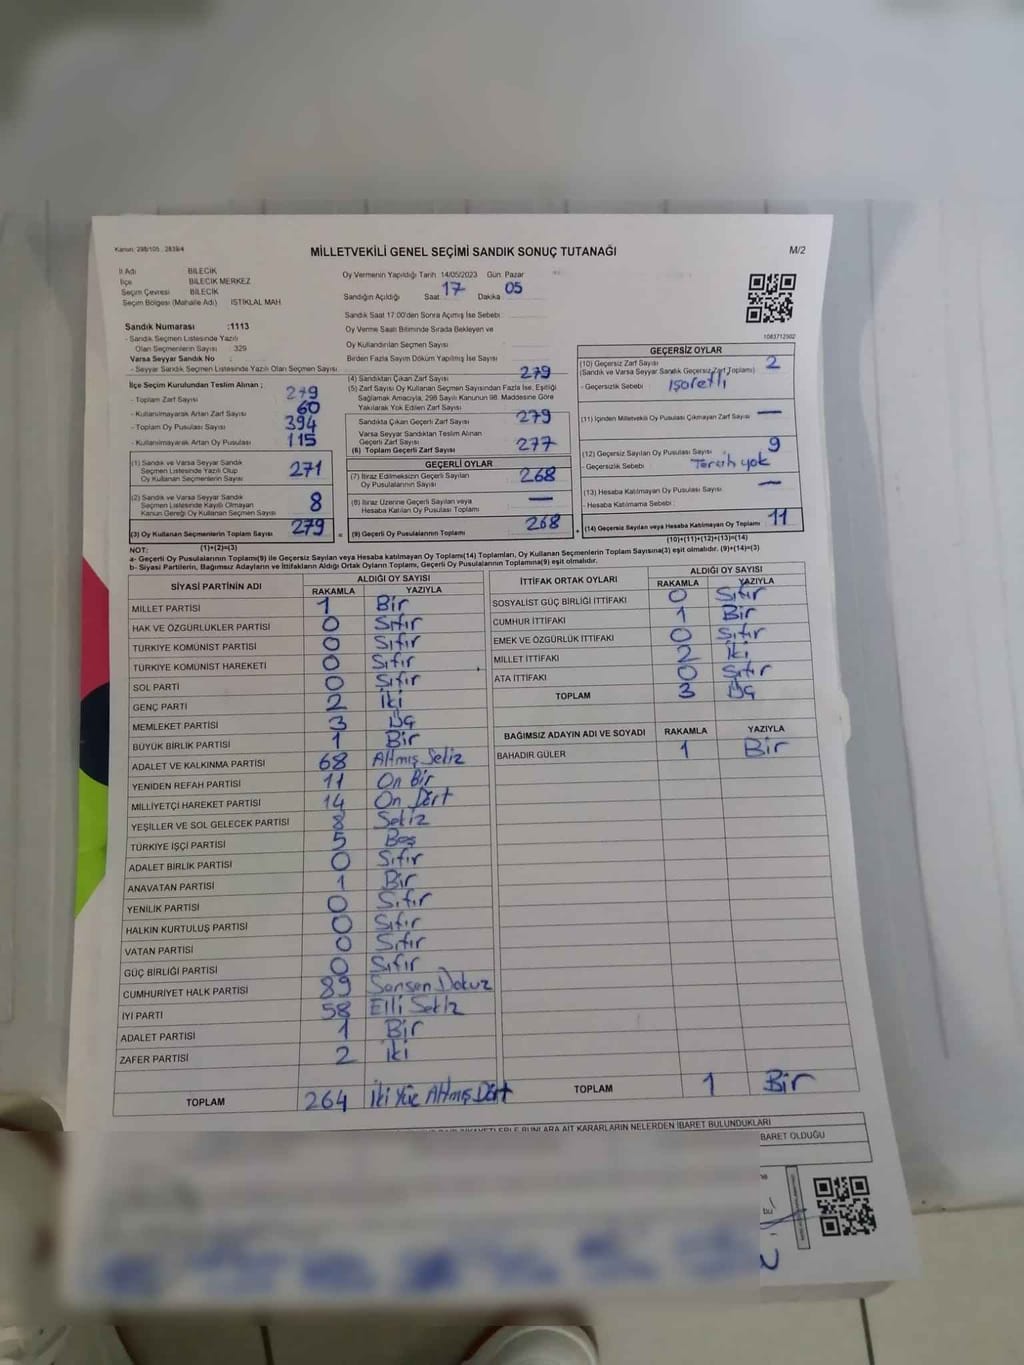 Kanun: 298/105 , 2839/4
MİLLETVEKİLİ GENEL SEÇİMİ SANDIK SONUÇ TUTANAĞI
M/2
İl Adı BİLECİK
İlçe BİLECİK MERKEZ
Seçim Çevresi BİLECİK
Seçim Bölgesi (Mahalle Adı) İSTİKLAL MAH
Sandık Numarası :1113
- Sandık Seçmen Listesinde Yazılı
Olan Seçmenlerin Sayısı : 329
Varsa Seyyar Sandık No :
- Seyyar Sandık Seçmen Listesinde Yazılı Olan Seçmen Sayısı
Oy Vermenin Yapıldığı Tarih 14/05/2023 Gün Pazar
Sandığın Açıldığı Saat 17 Dakika 05
Sandık Saat 17:00'den Sonra Açılmış İse Sebebi
Oy Verme Saati Bitiminde Sırada Bekleyen ve
Oy Kullandırılan Seçmen Sayısı
Birden Fazla Sayım Döküm Yapılmış İse Sayısı
1083712502
İlçe Seçim Kurulundan Teslim Alınan ;
- Toplam Zarf Sayısı 279
- Kullanılmayarak Artan Zarf Sayısı 60
- Toplam Oy Pusulası Sayısı 394
- Kullanılmayarak Artan Oy Pusulası 115
(1) Sandık ve Varsa Seyyar Sandık
Seçmen Listesinde Yazılı Olup
Oy Kullanan Seçmenlerin Sayısı 271
(2) Sandık ve Varsa Seyyar Sandık
Seçmen Listesinde Kayıtlı Olmayan
Kanun Gereği Oy Kullanan Seçmen Sayısı 8
(3) Oy Kullanan Seçmenlerin Toplam Sayısı 279
(1)+(2)=(3)
(4) Sandıktan Çıkan Zarf Sayısı 279
(5) Zarf Sayısı Oy Kullanan Seçmen Sayısından Fazla İse, Eşitliği
Sağlamak Amacıyla, 298 Sayılı Kanunun 98. Maddesine Göre
Yakılarak Yok Edilen Zarf Sayısı
Sandıkta Çıkan Geçerli Zarf Sayısı 279
Varsa Seyyar Sandıktan Teslim Alınan
Geçerli Zarf Sayısı
(6) Toplam Geçerli Zarf Sayısı 277
GEÇERLİ OYLAR
(7) İtiraz Edilmeksizin Geçerli Sayılan
Oy Pusulasının Sayısı 268
(8) İtiraz Üzerine Geçerli Sayılan veya
Hesaba Katılan Oy Pusulası Toplamı —
= (9) Geçerli Oy Pusulalarının Toplamı 268
GEÇERSİZ OYLAR
(10) Geçersiz Zarf Sayısı 2
(Sandık ve Varsa Seyyar Sandık Geçersiz Zarf Toplamı)
- Geçersizlik Sebebi : İşaretli
(11) İçinden Milletvekili Oy Pusulası Çıkmayan Zarf Sayısı —
(12) Geçersiz Sayılan Oy Pusulası Sayısı 9
- Geçersizlik Sebebi : Tercih yok
(13) Hesaba Katılmayan Oy Pusulası Sayısı —
- Hesaba Katılmama Sebebi :
+ (14) Geçersiz Sayılan veya Hesaba Katılmayan Oy Toplamı 11
(10)+(11)+(12)+(13)=(14)
NOT:
a- Geçerli Oy Pusulalarının Toplamı(9) ile Geçersiz Sayılan veya Hesaba katılmayan Oy Toplamı(14) Toplamları, Oy Kullanan Seçmenlerin Toplam Sayısına(3) eşit olmalıdır. (9)+(14)=(3)
b- Siyasi Partilerin, Bağımsız Adayların ve İttifakların Aldığı Ortak Oyların Toplamı, Geçerli Oy Pusulalarının Toplamına(9) eşit olmalıdır.
SİYASİ PARTİNİN ADI ALDIĞI OY SAYISI
RAKAMLA YAZIYLA
MİLLET PARTİSİ 1 Bir
HAK VE ÖZGÜRLÜKLER PARTİSİ 0 Sıfır
TÜRKİYE KOMÜNİST PARTİSİ 0 Sıfır
TÜRKİYE KOMÜNİST HAREKETİ 0 Sıfır
SOL PARTİ 0 Sıfır
GENÇ PARTİ 2 İki
MEMLEKET PARTİSİ 3 Üç
BÜYÜK BİRLİK PARTİSİ 1 Bir
ADALET VE KALKINMA PARTİSİ 68 Altmış Sekiz
YENİDEN REFAH PARTİSİ 11 On Bir
MİLLİYETÇİ HAREKET PARTİSİ 14 On Dört
YEŞİLLER VE SOL GELECEK PARTİSİ 8 Sekiz
TÜRKİYE İŞÇİ PARTİSİ 5 Beş
ADALET BİRLİK PARTİSİ 0 Sıfır
ANAVATAN PARTİSİ 1 Bir
YENİLİK PARTİSİ 0 Sıfır
HALKIN KURTULUŞ PARTİSİ 0 Sıfır
VATAN PARTİSİ 0 Sıfır
GÜÇ BİRLİĞİ PARTİSİ 0 Sıfır
CUMHURİYET HALK PARTİSİ 89 Sensen Dokuz
İYİ PARTİ 58 Elli Sekiz
ADALET PARTİSİ 1 Bir
ZAFER PARTİSİ 2 İki
TOPLAM 264 İki Yüz Altmış Dört
İTTİFAK ORTAK OYLARI ALDIĞI OY SAYISI
RAKAMLA YAZIYLA
SOSYALİST GÜÇ BİRLİĞİ İTTİFAKI 0 Sıfır
CUMHUR İTTİFAKI 1 Bir
EMEK VE ÖZGÜRLÜK İTTİFAKI 0 Sıfır
MİLLET İTTİFAKI 2 İki
ATA İTTİFAKI 0 Sıfır
TOPLAM 3 Üç
BAĞIMSIZ ADAYIN ADI VE SOYADI RAKAMLA YAZIYLA
BAHADIR GÜLER 1 Bir
TOPLAM 1 Bir
BUNLARA AİT KARARLARIN NELERDEN İBARET BULUNDUKLARI
BARET OLDUĞU
bu